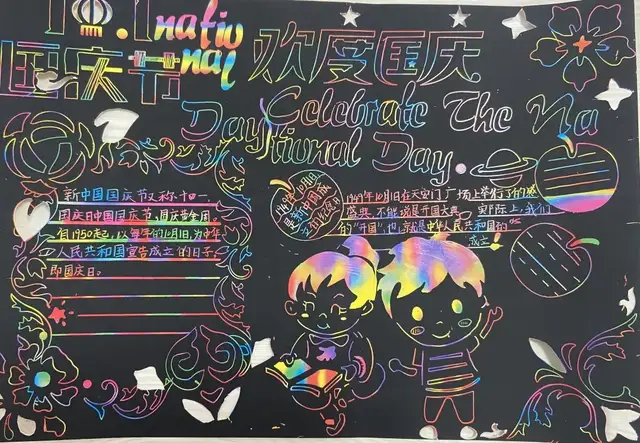 10.1 natio
nal
国庆节
欢度国庆
Celebrate The Na
Day tional Day
新中国国庆节又称十一
国庆日中国国庆节、国庆黄金周
自1950起，以每年的10月1日，为中华
人民共和国宣告成立的日子，
即国庆日。
1949年10月1日在天安门广场上举行了的盛
盛典，不能说是开国大典，实际上，我们
的"开国"，也就是中华人民共和国的
成立